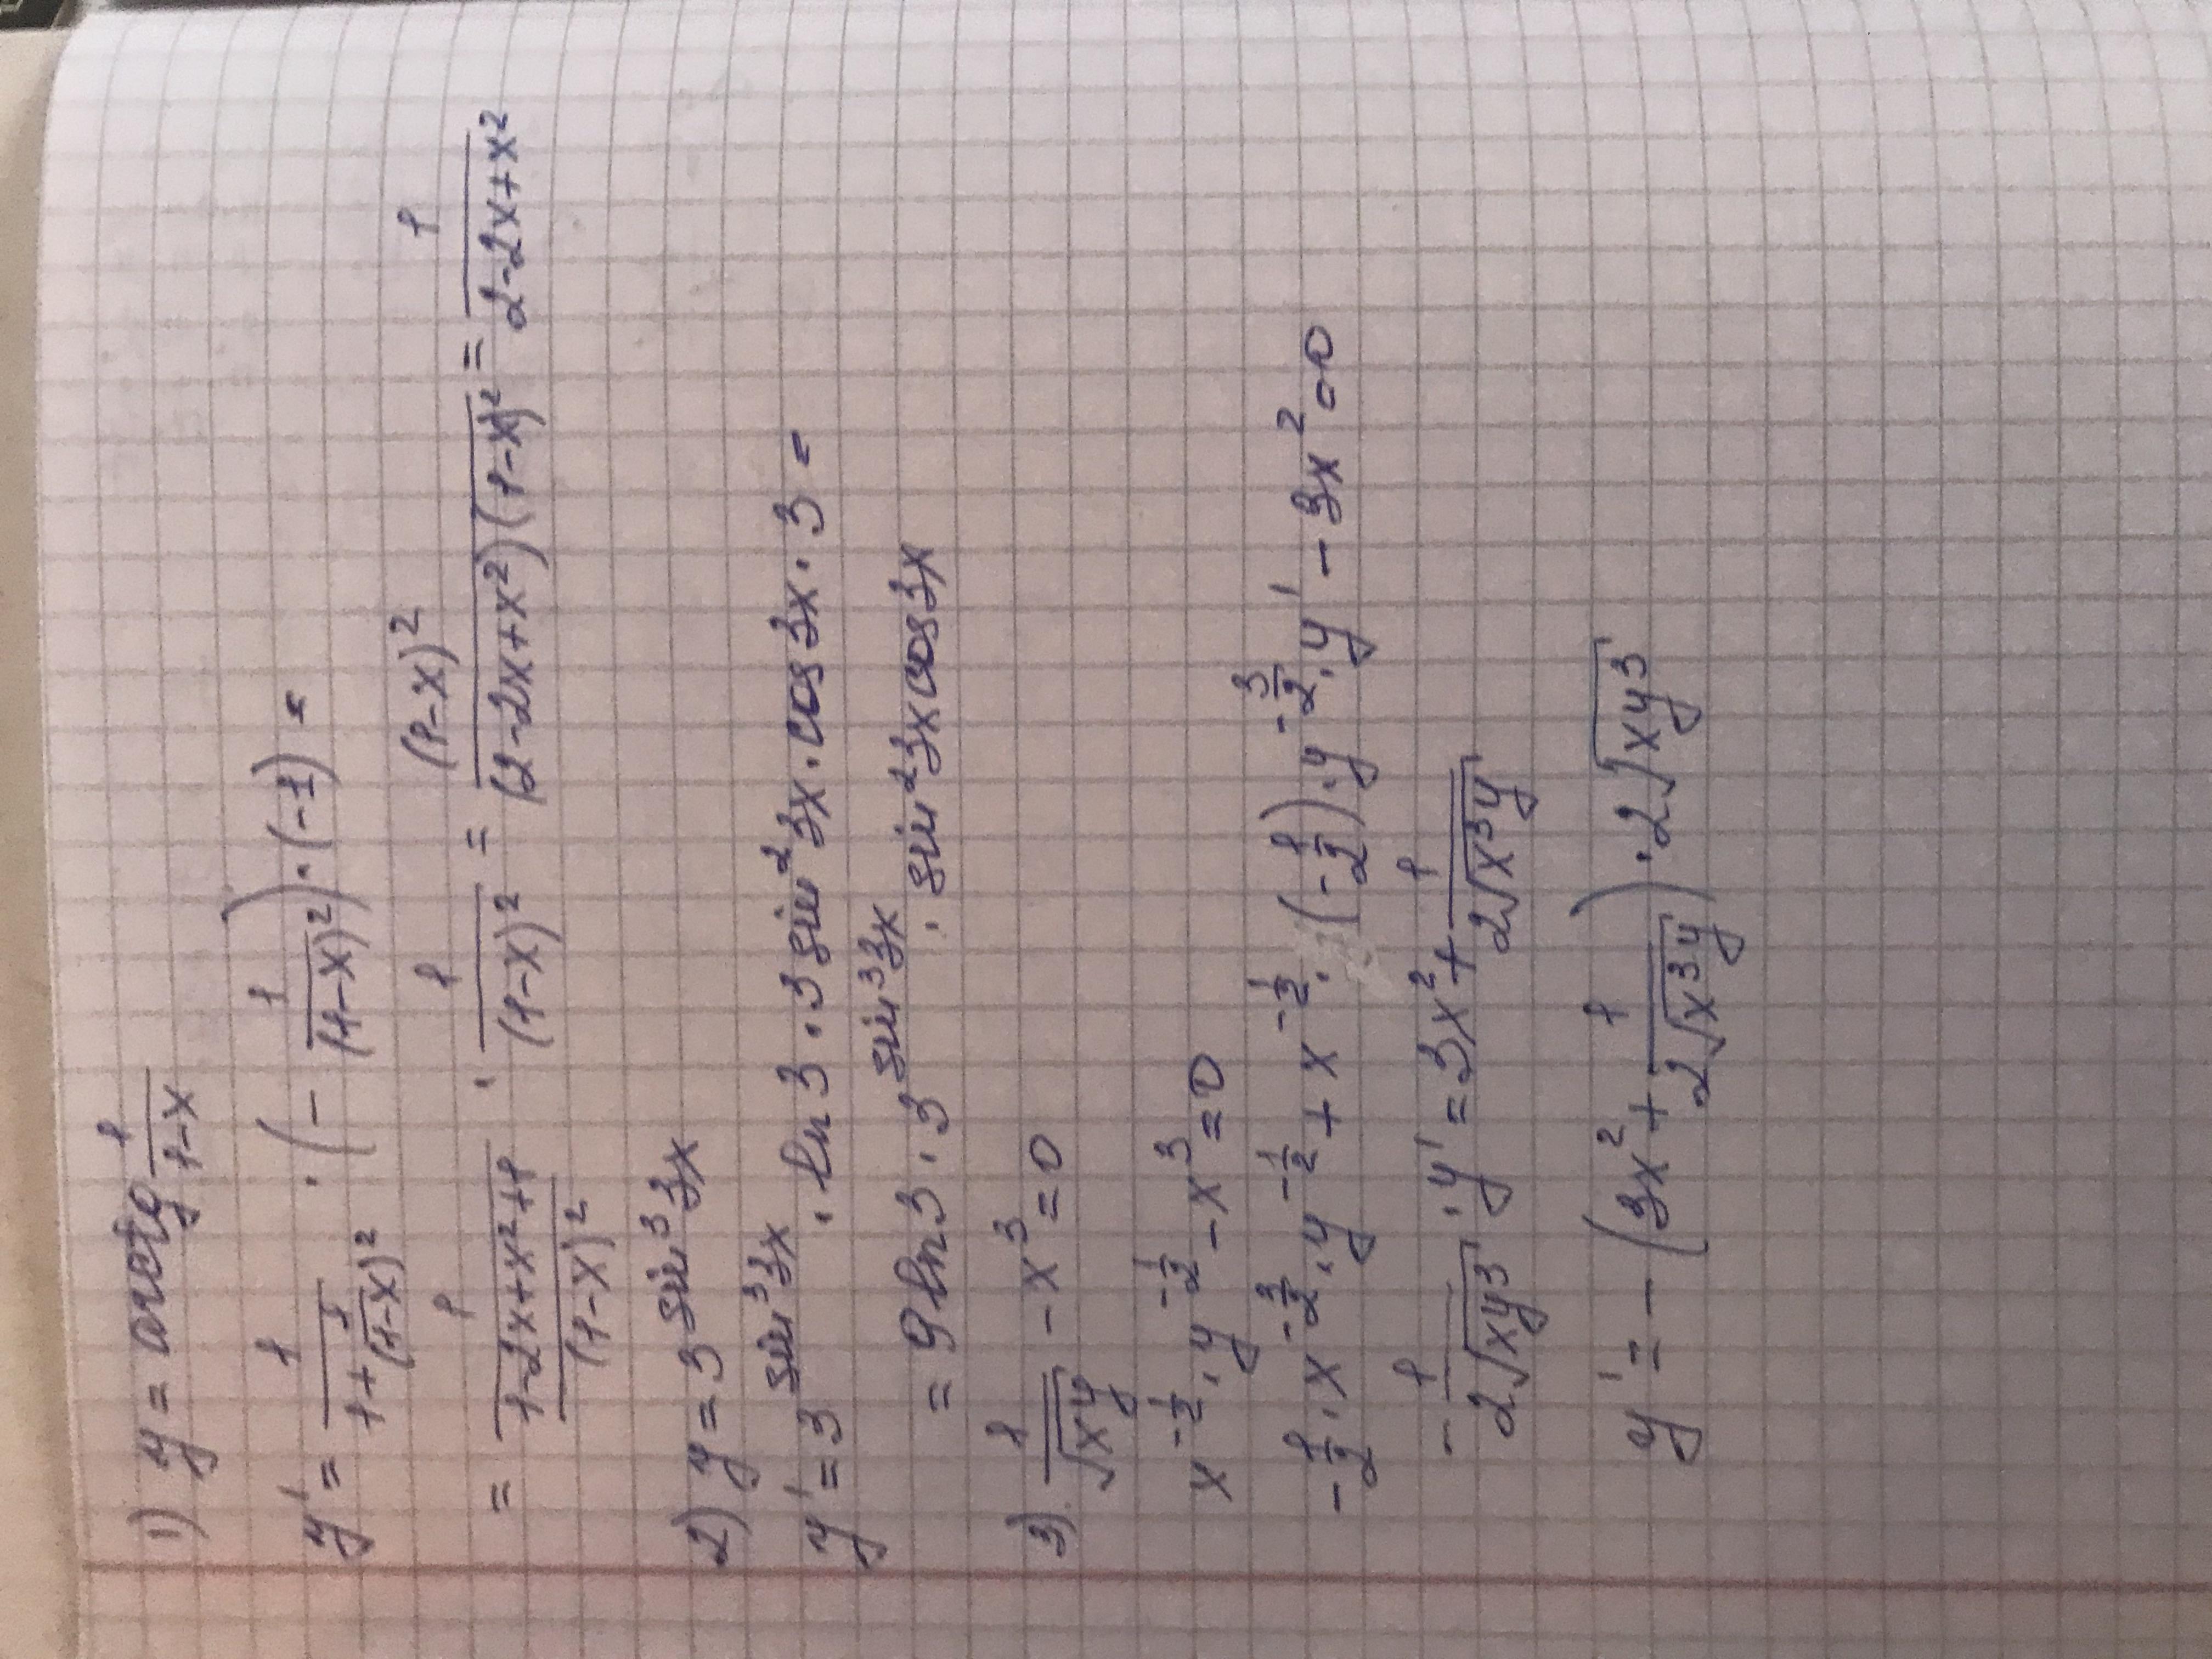 1) y = arctg 1/(1-x)
y' = 1/(1+1/(1-x)²) · (-1/(1-x)²) · (-1) =
= 1/((1-2x+x²+1)/(1-x)²) · 1/(1-x)² = (1-x)²/((2-2x+x²)(1-x)²) = 1/(2-2x+x²)
2) y = 3^(sin³3x)
y' = 3^(sin³3x) · ln3 · 3sin²3x · cos3x · 3 =
= 9ln3 · 3^(sin³3x) · sin²3x cos3x
3) 1/√(xy) - x³ = 0
x^(-1/2) · y^(-1/2) - x³ = 0
-1/2 · x^(-3/2) · y^(-1/2) + x^(-1/2) · (-1/2) · y^(-3/2) · y' - 3x² = 0
-1/(2√(xy³)) · y' = 3x² + 1/(2√(x³y))
y' = -(3x² + 1/(2√(x³y))) · 2√(xy³)